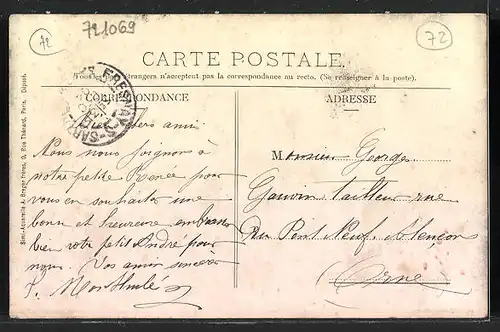 72
721069
72
CARTE POSTALE
Tous les pays étrangers n'acceptent pas la correspondance au recto. (Se renseigner à la poste).
CORRESPONDANCE
ADRESSE
FRESNAY
SARTHE
chers amis
Nous nous joignons à
notre petite Renée pour
vous en souhaiter une
bonne et heureuse embrassez
bien votre petit André pour
nous. Vos amis sincères
Monsieur Georges
Gauvin tailleur rue
du Pont Neuf. Alençon
Orne
Simi-Aquarelle A. Breger frères, 9, Rue Thénard, Paris. Déposé.